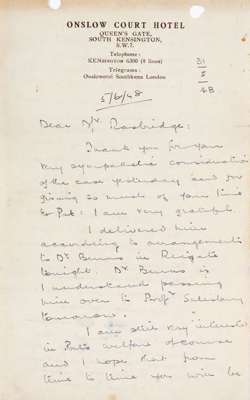 ONSLOW COURT HOTEL
QUEEN'S GATE,
SOUTH KENSINGTON,
S.W.7.
Telephone:
KENsington 6300 (8 lines)
Telegrams:
Onslowotel Southkens London
31
5
48
5/6/48
Dear Mr. Rosbridge:
Thank you for your
very sympathetic consideration
of the case yesterday and for
giving so much of your time
to Pat: I am very grateful.
I delivered him
according to arrangements
to Dr Burns in Reigate
tonight. Dr Burns is
I understand passing
him over to Profr
tomorrow.
I am still very interested
in Pat's welfare of course
and I hope that from
time to time you will be